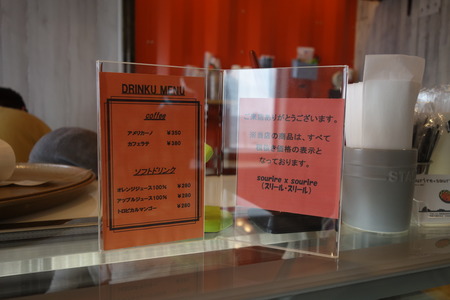 DRINKU MENU
coffee
アメリカーノ ¥350
カフェラテ
ソフトドリンク
オレンジジュース100% ¥250
アップルジュース100% ¥250
トロピカルマンゴー ¥250
ありがとうございます。
の商品は、すべて
価格の表示と
なっております。
sourire x sourire
(スリール・スリール)